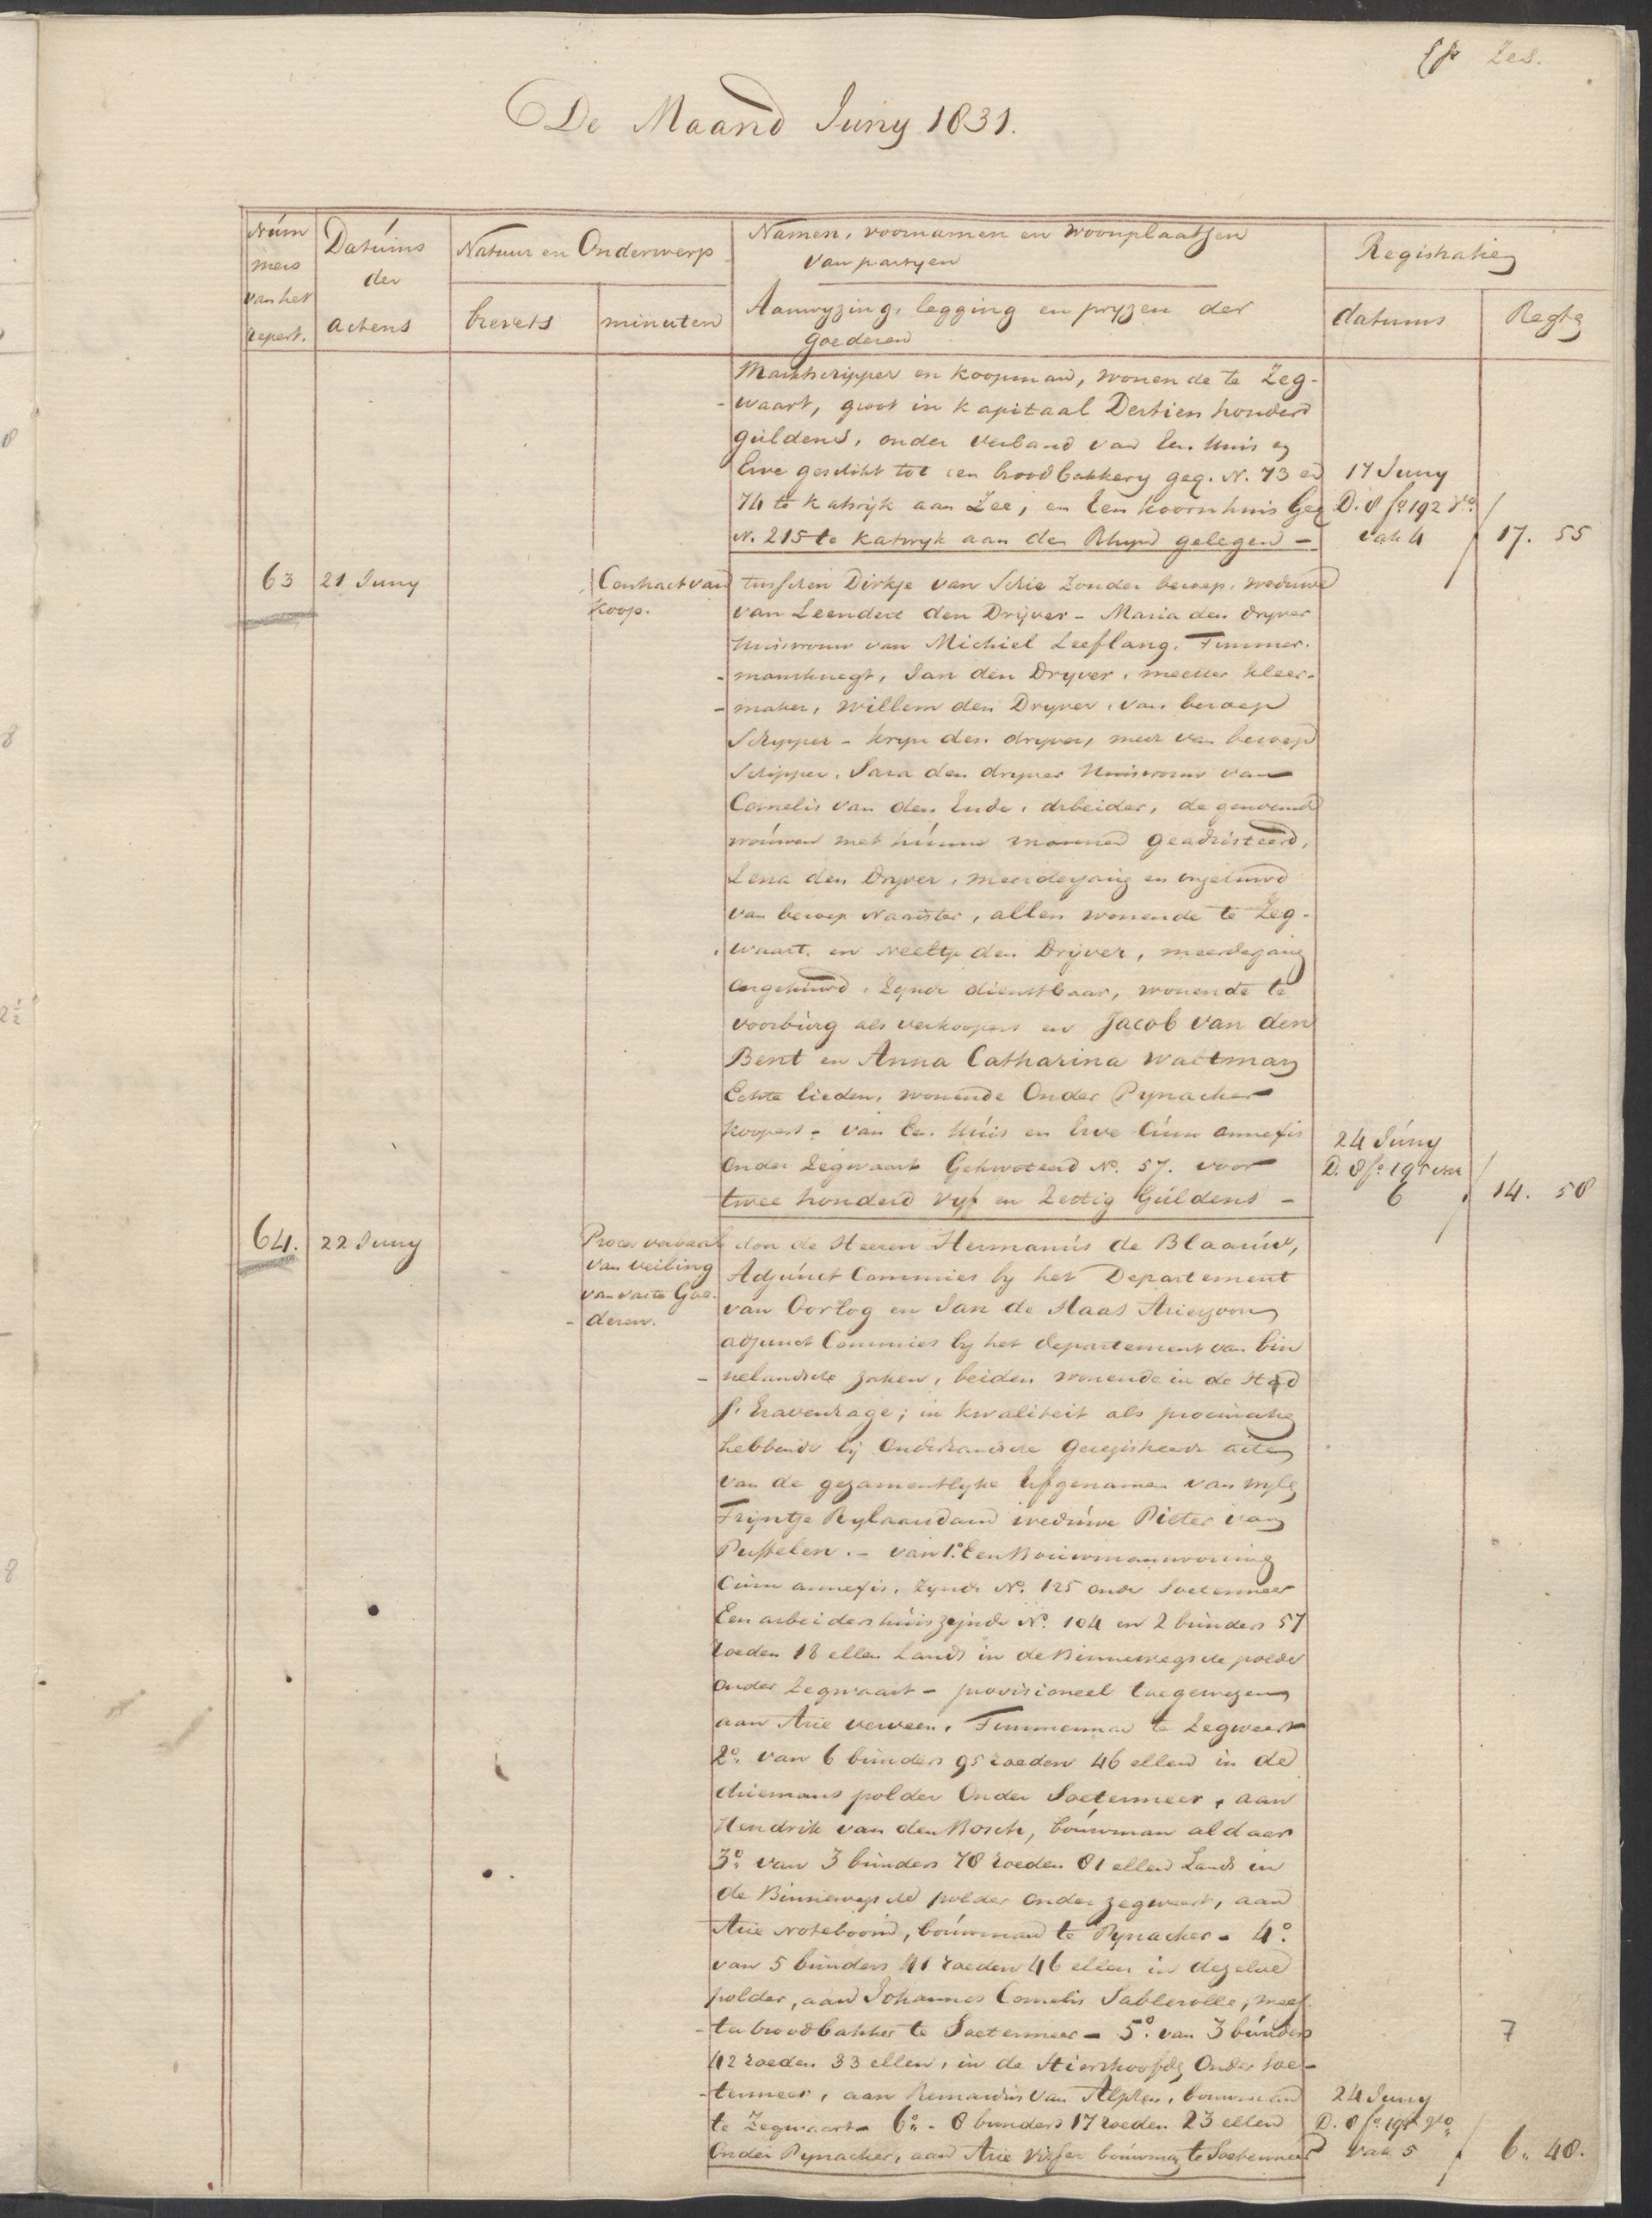 Zes.
De Maand Juny 1831.
Num
mers
van het
repert.
Datums
der
actens
Natuur en Onderwerp
brevets
minuten
Namen, voornamen en woonplaatsen
van partyen
Aanwyzing, legging en pryzen der
goederen
Registratie
datums
Regte
Marktschipper en koopman, wonende te Zeg-
-waart, groot in kapitaal Dertien honderd
guldens, onder verband van Een Huis en
Erve geschikt tot een broodbakkery geq. N. 73 en
74 te Katwijk aan Zee, en Een koornhuis Geq
N. 215 te Katwyk aan den Rhyn gelegen -
17 Juny
D. 8 fo. 192 vo.
vak 4
17. 55
63
21 Juny
Contract van
koop.
tusschen Dirkje van Schie Zonder beroep, weduwe
van Leendert den Drijver - Maria den dryver
Huisvrouw van Michiel Leeflang, Timmer-
-mansknegt, Jan den Dryver, meester kleer-
-maker, Willem den Dryver, van beroep
Schipper - Kryn den dryver, mede van beroep
Schipper, Sara den dryver Huisvrouw van
Cornelis van den Ende, arbeider, de genoemde
vrouwen met hunne mannen geadsisteerd,
Lena den Dryver, meerderjarig en ongehuwd
van beroep Naaister, allen wonende te Zeg-
-waart, en Neeltje den Drijver, meerderjarig
ongehuwd, Zynde dienstbaar, wonende te
voorburg als verkoopers en Jacob van den
Bent en Anna Catharina Waltman
Echte lieden, wonende Onder Pynacker
koopers - van Een Huis en Erve Cum annexis
Onder Zegwaart Gekwoteerd No. 57. voor
twee honderd vyf en Zestig Guldens -
24 Juny
D. 8 fo.
6
14. 58
64.
22 Juny
Proces verbaal
van veiling
van vaste Goe-
-deren.
door de Heeren Hermanus de Blaauw,
Adjunct Commies by het Departement
van Oorlog en Jan de Haas Arieszoon
adjunct Commies by het departement van bin
-nelandsche zaken, beiden wonende in de Stad
s. Gravenhage; in kwaliteit als procuratie
hebbende bij Onderhandsche geregistreerde acte
van de gezamentlyke Erfgenamen van wyle
Trijntje Rylaarsdam weduwe Pieter van
Pusselen. - van 1o. Een Bouwmanswoning
Cum annexis, Zynde No. 125 onder Soetermeer
Een arbeiders huis zynde No. 104 en 2 bunders 57
roeden 18 ellen Lands in de Binnenwegsche polder
onder Zegwaart - provisioneel toegewezen
aan Arie verveen, Timmerman te Zegwaart
2o. van 6 bunders 95 roeden 46 ellen in de
driemans polder Onder Soetermeer, aan
Hendrik van den Bosch, bouwman aldaar
3o. van 3 bunders 78 roeden 81 ellen Lands in
de Binnenwegsche polder onder zegwaart, aan
Arie Noteboom, bouwman te Pynacker - 4o.
van 5 bunders 41 roeden 46 ellen in dezelve
polder, aan Johannes Cornelis Sablerolle, mees
-ter broodbakker te Soetermeer - 5o. van 3 bunders
42 roeden 33 ellen, in de Onder Soe-
-termeer, aan Bernardus van Alphen, bouwman
te Zegwaart - 6o. - 8 bunders 17 roeden 23 ellen
Onder Pynacker, aan Arie Visser bouwman te Soetermeer
7
24 Juny
D. 8 fo.
vak 5
6. 40.